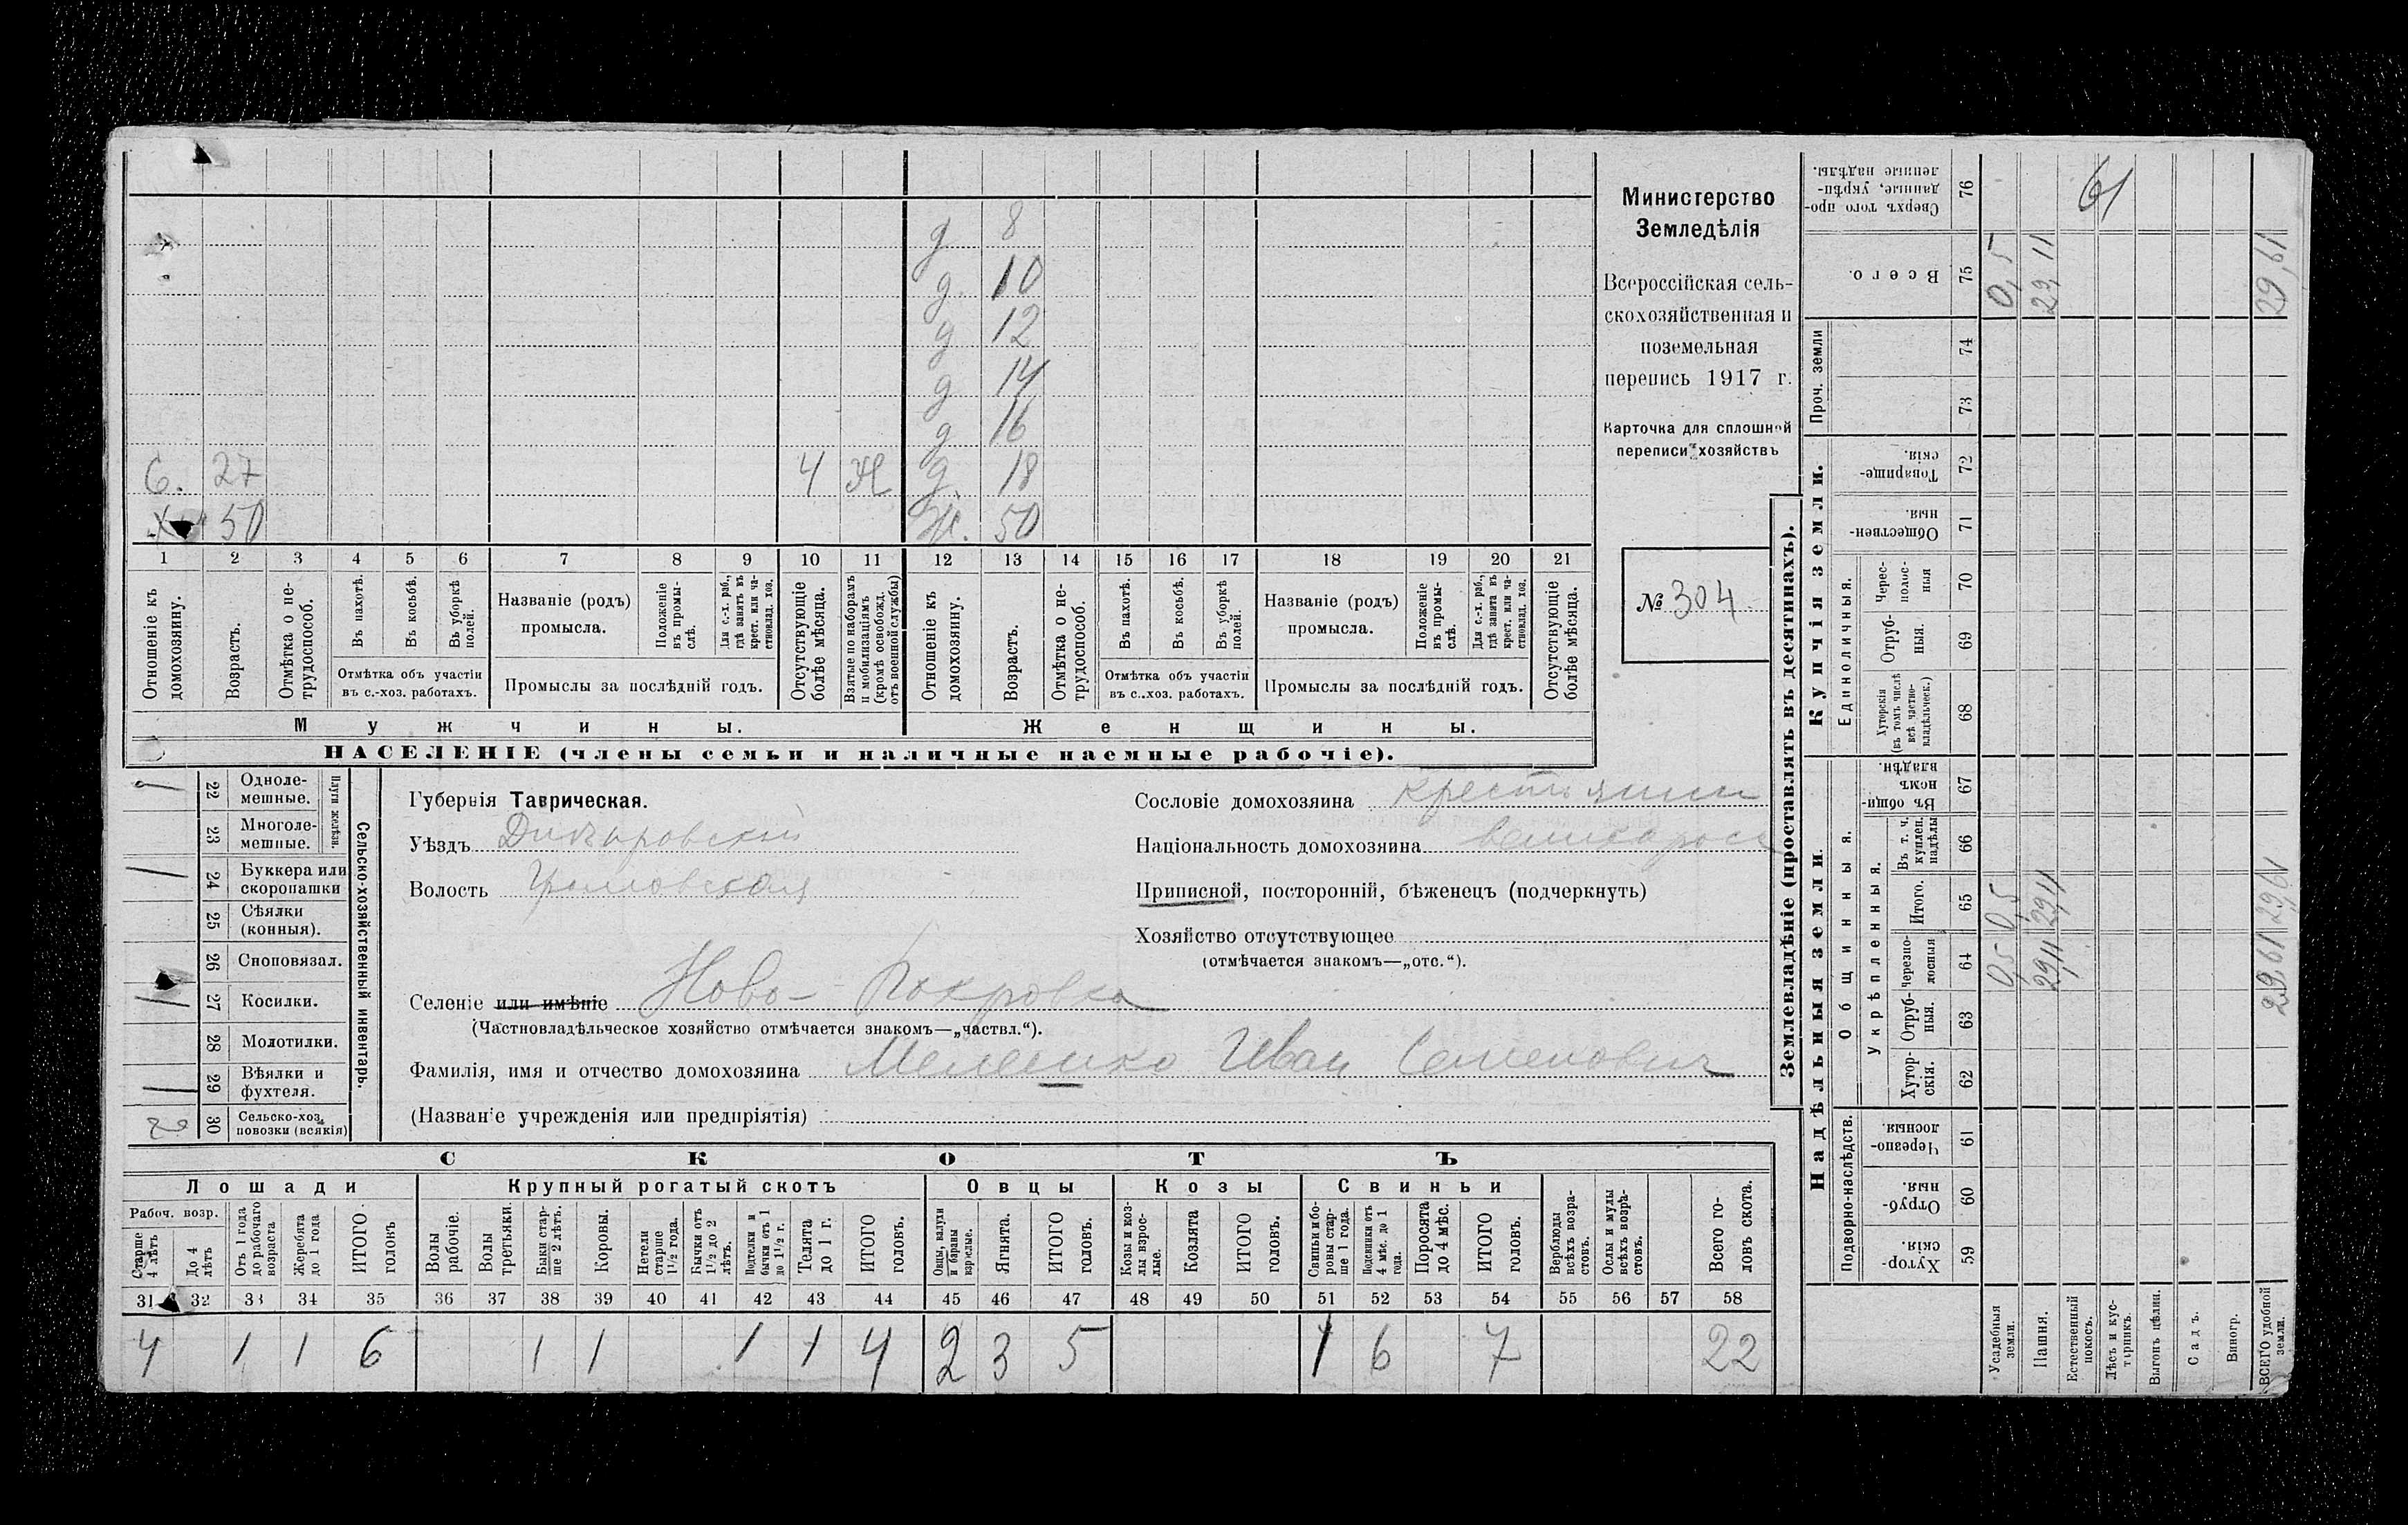 Министерство
Земледѣлія
Всероссійская сель-
скохозяйственная и
поземельная
перепись 1917 г.
Карточка для сплошной
переписи хозяйствъ
№ 304
д 8
д 10
д 12
д 14
д 16
С. 27 4 д 18
50 Ж. 50
1 2 3 4 5 6 7 8 9 10 11 12 13 14 15 16 17 18 19 20 21
Отношеніе къ домохозяину.
Возрастъ.
Отмѣтка о не-трудоспособ.
Въ пахотѣ.
Въ косьбѣ.
Въ уборкѣ полей.
Отмѣтка объ участіи
въ с.-хоз. работахъ.
Названіе (родъ)
промысла.
Положеніе въ промы-слѣ.
Для с.-х. раб., гдѣ занятъ въ крест. или ча-стновлад. хоз.
Промыслы за послѣдній годъ.
Отсутствующіе болѣе мѣсяца.
Взятые по наборамъ и мобилизаціямъ (кромѣ освобожд. отъ военной службы)
Отношеніе къ домохозяину.
Возрастъ.
Отмѣтка о не-трудоспособ.
Въ пахотѣ.
Въ косьбѣ.
Въ уборкѣ полей.
Отмѣтка объ участіи
въ с.-хоз. работахъ.
Названіе (родъ)
промысла.
Положеніе въ промы-слѣ.
Для с.-х. раб., гдѣ занята въ крест. или ча-стновлад. хоз.
Промыслы за послѣдній годъ.
Отсутствующіе болѣе мѣсяца.
Мужчины.
Женщины.
НАСЕЛЕНІЕ (члены семьи и наличные наемные рабочіе).
Сельско-хозяйственный инвентарь.
Плуги желѣзн.
22 Одноле-мешные. 1
23 Многоле-мешные.
24 Буккера или скоропашки 1
25 Сѣялки (конныя).
26 Сноповязал.
27 Косилки. 1
28 Молотилки.
29 Вѣялки и фухтеля. 1
30 Сельско-хоз. повозки (всякія) 2
Губернія Таврическая.
Уѣздъ Днѣпровскій
Волость
Сословіе домохозяина крестьянин
Національность домохозяина великоросс
Приписной, посторонній, бѣженецъ (подчеркнуть)
Хозяйство отсутствующее
(отмѣчается знакомъ—„отс.“).
Селеніе или имѣніе Ново-Покровка
(Частновладѣльческое хозяйство отмѣчается знакомъ—„частвл.“).
Фамилія, имя и отчество домохозяина Мелешко Иван Семенович
(Названіе учрежденія или предпріятія)
СКОТЪ
Лошади
Крупный рогатый скотъ
Овцы
Козы
Свиньи
Рабоч. возр.
Старше 4 лѣтъ
До 4 лѣтъ
Отъ 1 года до рабочаго возраста
Жеребята до 1 года
ИТОГО головъ
Волы рабочіе.
Волы третьяки.
Быки стар-ше 2 лѣтъ.
Коровы.
Нетели старше 1½ года.
Бычки отъ 1½ до 2 лѣтъ.
Подтелки и бычки отъ 1 до 1½ г.
Телята до 1 г.
ИТОГО головъ.
Овцы, валухи и бараны взрослые.
Ягнята.
ИТОГО головъ.
Козы и коз-лы взрос-лые.
Козлята
ИТОГО головъ.
Свиньи и бо-ровы стар-ше 1 года.
Подсвинки отъ 4 мѣс. до 1 года.
Поросята до 4 мѣс.
ИТОГО головъ.
Верблюды всѣхъ возра-стовъ.
Ослы и мулы всѣхъ возра-стовъ.
Всего го-ловъ скота.
31 32 33 34 35 36 37 38 39 40 41 42 43 44 45 46 47 48 49 50 51 52 53 54 55 56 57 58
4 1 1 6 1 1 1 1 4 2 3 5 1 6 7 22
Землевладѣніе (проставлять въ десятинахъ).
Надѣльныя земли.
Купчія земли.
Проч. земли
Подворно-наслѣдств.
Общинныя.
Укрѣпленныя.
Единоличныя.
59 Хутор-скія.
60 Отруб-ныя.
61 Черезпо-лосныя.
62 Хутор-скія.
63 Отруб-ныя.
64 черезпо-лосныя 0,5 29,11 29,61
65 Итого. 0,5 29,11 29,61
66 Въ т. ч. куплен. надѣлы
67 Въ общин-номъ владѣн.
68 Хуторскія (въ томъ числѣ всѣ частно-владѣльческ.)
69 Отруб-ныя.
70 Черес-полос-ныя
71 Обществен-ныя.
72 Товарище-скія.
73
74
75 Всего. 0,5 29,11 29,61
76 Сверхъ того про-данные, укрѣп-ленные надѣлы. 61
Усадебныя земли.
Пашня.
Естественный покосъ.
Лѣсъ и кус-тарникъ.
Выгонъ цѣлин.
Садъ.
Виногр.
ВСЕГО удобной земли.